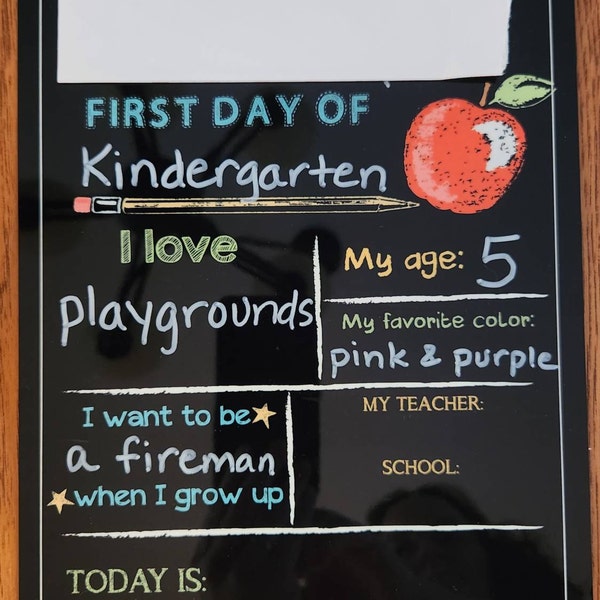 FIRST DAY OF
Kindergarten
I love
playgrounds
My age: 5
My favorite color:
pink & purple
I want to be
a fireman
when I grow up
MY TEACHER:
SCHOOL:
TODAY IS: